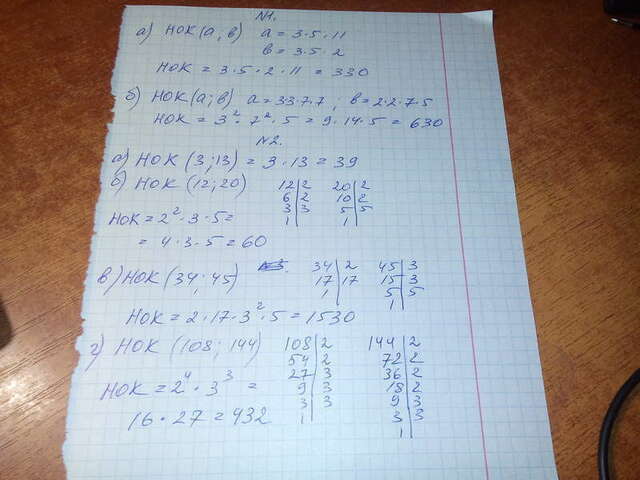 N1.
а) НОК (а, в) а = 3·5·11
в = 3·5·2
НОК = 3·5·2·11 = 330
б) НОК (а; в) а = 33·7·7; в = 2·2·7·5
НОК = 3²·7²·5 = 9·14·5 = 630
N2.
а) НОК (3; 13) = 3·13 = 39
б) НОК (12; 20) 12|2 20|2
6|2 10|2
3|3 5|5
1| 1|
НОК = 2²·3·5 =
= 4·3·5 = 60
в) НОК (34; 45) 34|2 45|3
17|17 15|3
1| 5|5
1|
НОК = 2·17·3²·5 = 1530
г) НОК (108; 144) 108|2 144|2
54|2 72|2
27|3 36|2
9|3 18|2
3|3 9|3
1| 3|3
1|
НОК = 2⁴·3³ =
16·27 = 432